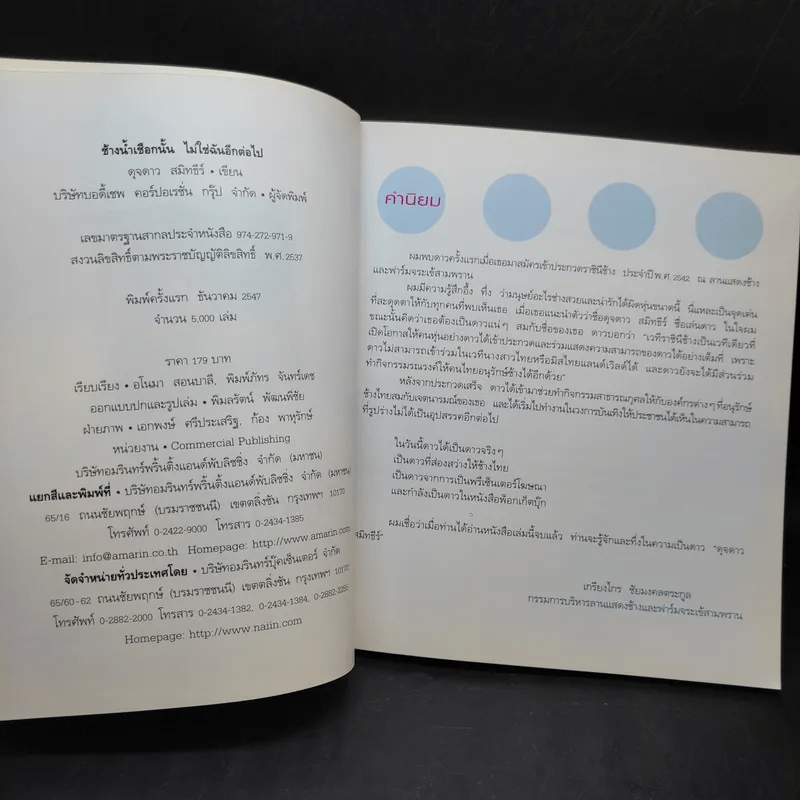 ช้างน้ำเชือกนั้น ไม่ใช่ฉันอีกต่อไป
ดุจดาว สมิทธีร์ • เขียน
บริษัทบอดี้เชพ คอร์ปอเรชั่น กรุ๊ป จำกัด • ผู้จัดพิมพ์
เลขมาตรฐานสากลประจำหนังสือ 974-272-971-9
สงวนลิขสิทธิ์ตามพระราชบัญญัติลิขสิทธิ์ พ.ศ.2537
พิมพ์ครั้งแรก ธันวาคม 2547
จำนวน 5,000 เล่ม
ราคา 179 บาท
เรียบเรียง • อโนมา สอนบาลี, พิมพ์ภัทร จันทร์เดช
ออกแบบปกและรูปเล่ม • พิมลรัตน์ พัฒนพีชัย
ฝ่ายภาพ • เอกพงษ์ ศรีประเสริฐ, ก้อง พาหุรักษ์
หน่วยงาน • Commercial Publishing
บริษัทอมรินทร์พริ้นติ้งแอนด์พับลิชชิ่ง จำกัด (มหาชน)
แยกสีและพิมพ์ที่ • บริษัทอมรินทร์พริ้นติ้งแอนด์พับลิชชิ่ง จำกัด (มหาชน)
65/16 ถนนชัยพฤกษ์ (บรมราชชนนี) เขตตลิ่งชัน กรุงเทพฯ 10170
โทรศัพท์ 0-2422-9000 โทรสาร 0-2434-1385
E-mail: info@amarin.co.th Homepage: http://www.amarin.co
จัดจำหน่ายทั่วประเทศโดย • บริษัทอมรินทร์บุ๊คเซ็นเตอร์ จำกัด
65/60-62 ถนนชัยพฤกษ์ (บรมราชชนนี) เขตตลิ่งชัน กรุงเทพฯ 10170
โทรศัพท์ 0-2882-2000 โทรสาร 0-2434-1382, 0-2434-1384,
Homepage: http://www.naiin.com
คำนิยม
ผมพบดาวครั้งแรกเมื่อเธอมาสมัครเข้าประกวดราชินีช้าง ประจำปี พ.ศ. 2542 ณ ลานแสดงช้าง
และฟาร์มจระเข้สามพราน
ผมมีความรู้สึกอึ้ง ทึ่ง ว่ามนุษย์อะไรช่างสวยและน่ารักได้ผิดหุ่นขนาดนี้ นี่แหละเป็นจุดเด่น
ที่สะดุดตาให้กับทุกคนที่พบเห็นเธอ เมื่อเธอแนะนำตัวว่าชื่อดุจดาว สมิทธีร์ ชื่อเล่นดาว ในใจผม
ขณะนั้นคิดว่าเธอต้องเป็นดาวแน่ๆ สมกับชื่อของเธอ ดาวบอกว่า "เวทีราชินีช้างเป็นเวทีเดียวที่
เปิดโอกาสให้คนหุ่นอย่างดาวได้เข้าประกวดและร่วมแสดงความสามารถของดาวได้อย่างเต็มที่ เพราะ
ดาวไม่สามารถเข้าร่วมในเวทีนางสาวไทยหรือมิสไทยแลนด์เวิลด์ได้ และดาวยังจะได้มีส่วนร่วม
ทำกิจกรรมณรงค์ให้คนไทยอนุรักษ์ช้างได้อีกด้วย"
หลังจากประกวดเสร็จ ดาวได้เข้ามาช่วยทำกิจกรรมสาธารณกุศลให้กับองค์กรต่างๆ ที่อนุรักษ์
ช้างไทยสมกับเจตนารมณ์ของเธอ และได้เริ่มไปทำงานในวงการบันเทิงให้ประชาชนได้เห็นในความสามารถ
ที่รูปร่างไม่ได้เป็นอุปสรรคอีกต่อไป
ในวันนี้ดาวได้เป็นดาวจริงๆ
เป็นดาวที่ส่องสว่างให้ช้างไทย
เป็นดาวจากการเป็นพรีเซ็นเตอร์โฆษณา
และกำลังเป็นดาวในหนังสือพ็อกเก็ตบุ๊ก
ผมเชื่อว่าเมื่อท่านได้อ่านหนังสือเล่มนี้จบแล้ว ท่านจะรู้จักและทึ่งในความเป็นดาว "ดุจดาว
สมิทธีร์"
เกรียงไกร ชัยมงคลตระกูล
กรรมการบริหารลานแสดงช้างและฟาร์มจระเข้สามพราน